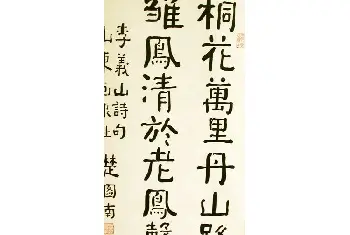 桐花萬里丹山路
雛鳳清於老鳳聲
李義山詩句
山東 楚圖南